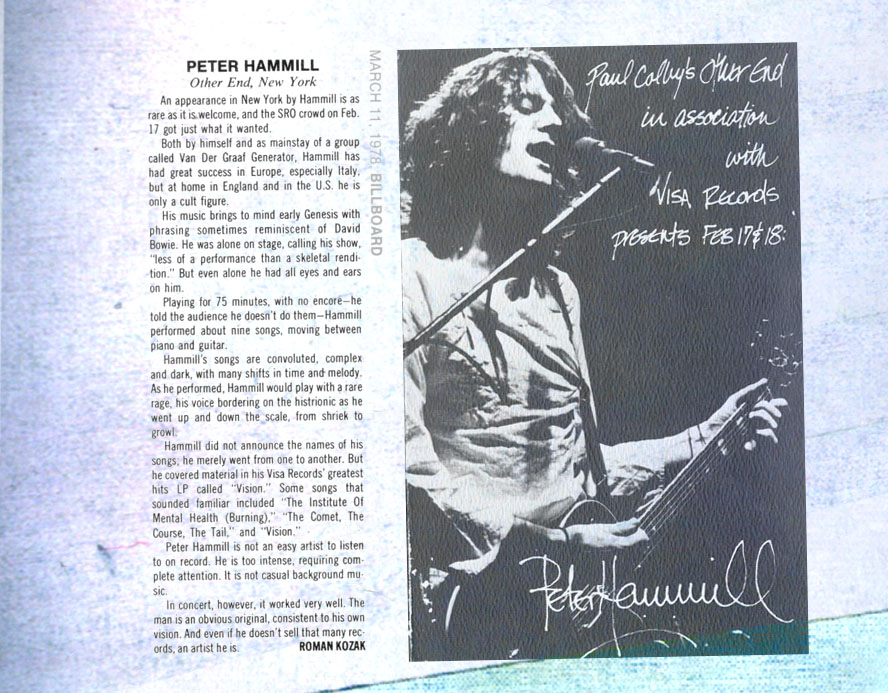 PETER HAMMILL
Other End, New York
An appearance in New York by Hammill is as
rare as it is welcome, and the SRO crowd on Feb.
17 got just what it wanted.
Both by himself and as mainstay of a group
called Van Der Graaf Generator, Hammill has
had great success in Europe, especially Italy,
but at home in England and in the U.S. he is
only a cult figure.
His music brings to mind early Genesis with
phrasing sometimes reminiscent of David
Bowie. He was alone on stage, calling his show,
“less of a performance than a skeletal rendi-
tion.” But even alone he had all eyes and ears
on him.
Playing for 75 minutes, with no encore—he
told the audience he doesn't do them—Hammill
performed about nine songs, moving between
piano and guitar.
Hammill's songs are convoluted, complex
and dark, with many shifts in time and melody.
As he performed, Hammill would play with a rare
rage, his voice bordering on the histrionic as he
went up and down the scale, from shriek to
growl.
Hammill did not announce the names of his
songs, he merely went from one to another. But
he covered material in his Visa Records' greatest
hits LP called “Vision.” Some songs that
sounded familiar included “The Institute Of
Mental Health (Burning),” “The Comet, The
Course, The Tail,” and “Vision.”
Peter Hammill is not an easy artist to listen
to on record. He is too intense, requiring com-
plete attention. It is not casual background mu-
sic.
In concert, however, it worked very well. The
man is an obvious original, consistent to his own
vision. And even if he doesn't sell that many rec-
ords, an artist he is. ROMAN KOZAK
MARCH 11, 1978, BILLBOARD
Paul Colby's Other End
in association
with
Visa Records
presents Feb 17 & 18:
Peter Hammill